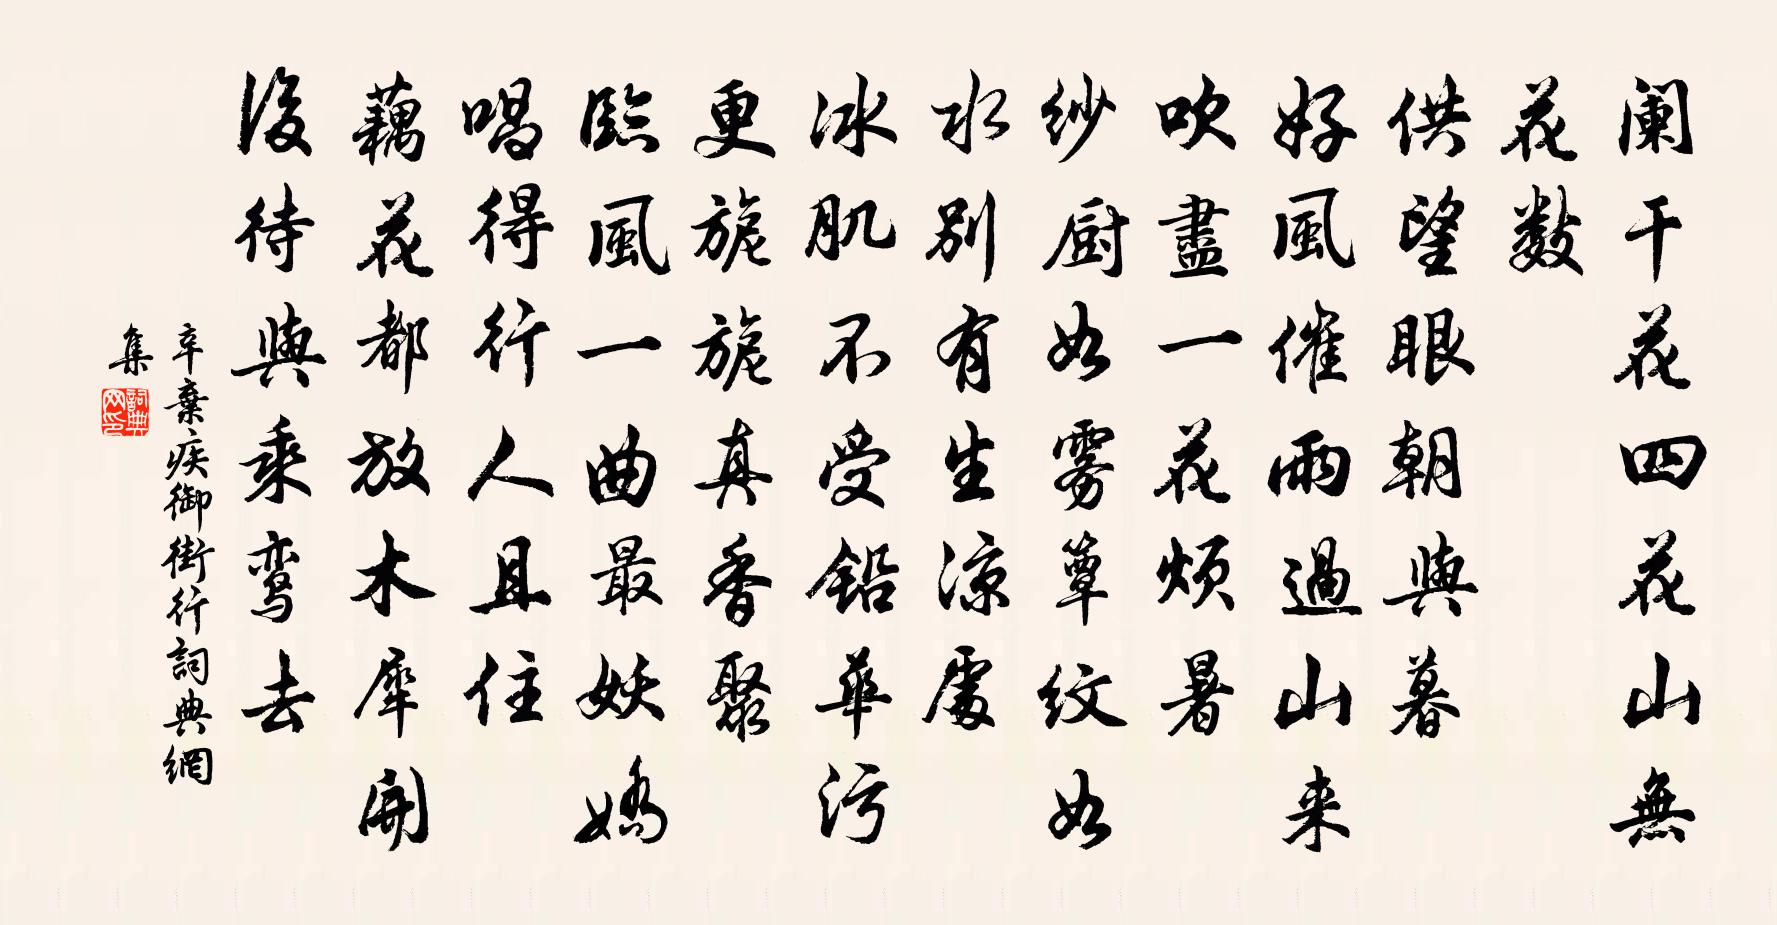 阑干花四花山無
花數
供望眼朝與暮
好風催雨過山来
吹盡一花煩暑
紗厨如雾簟紋如
水別有生涼處
冰肌不受铅華污
更旎旎真香聚
臨風一曲最妖嬌
唱得行人且住
藕花都放木犀開
後待與乘鸾去
辛棄疾御街行詞典網
集
詞典网印